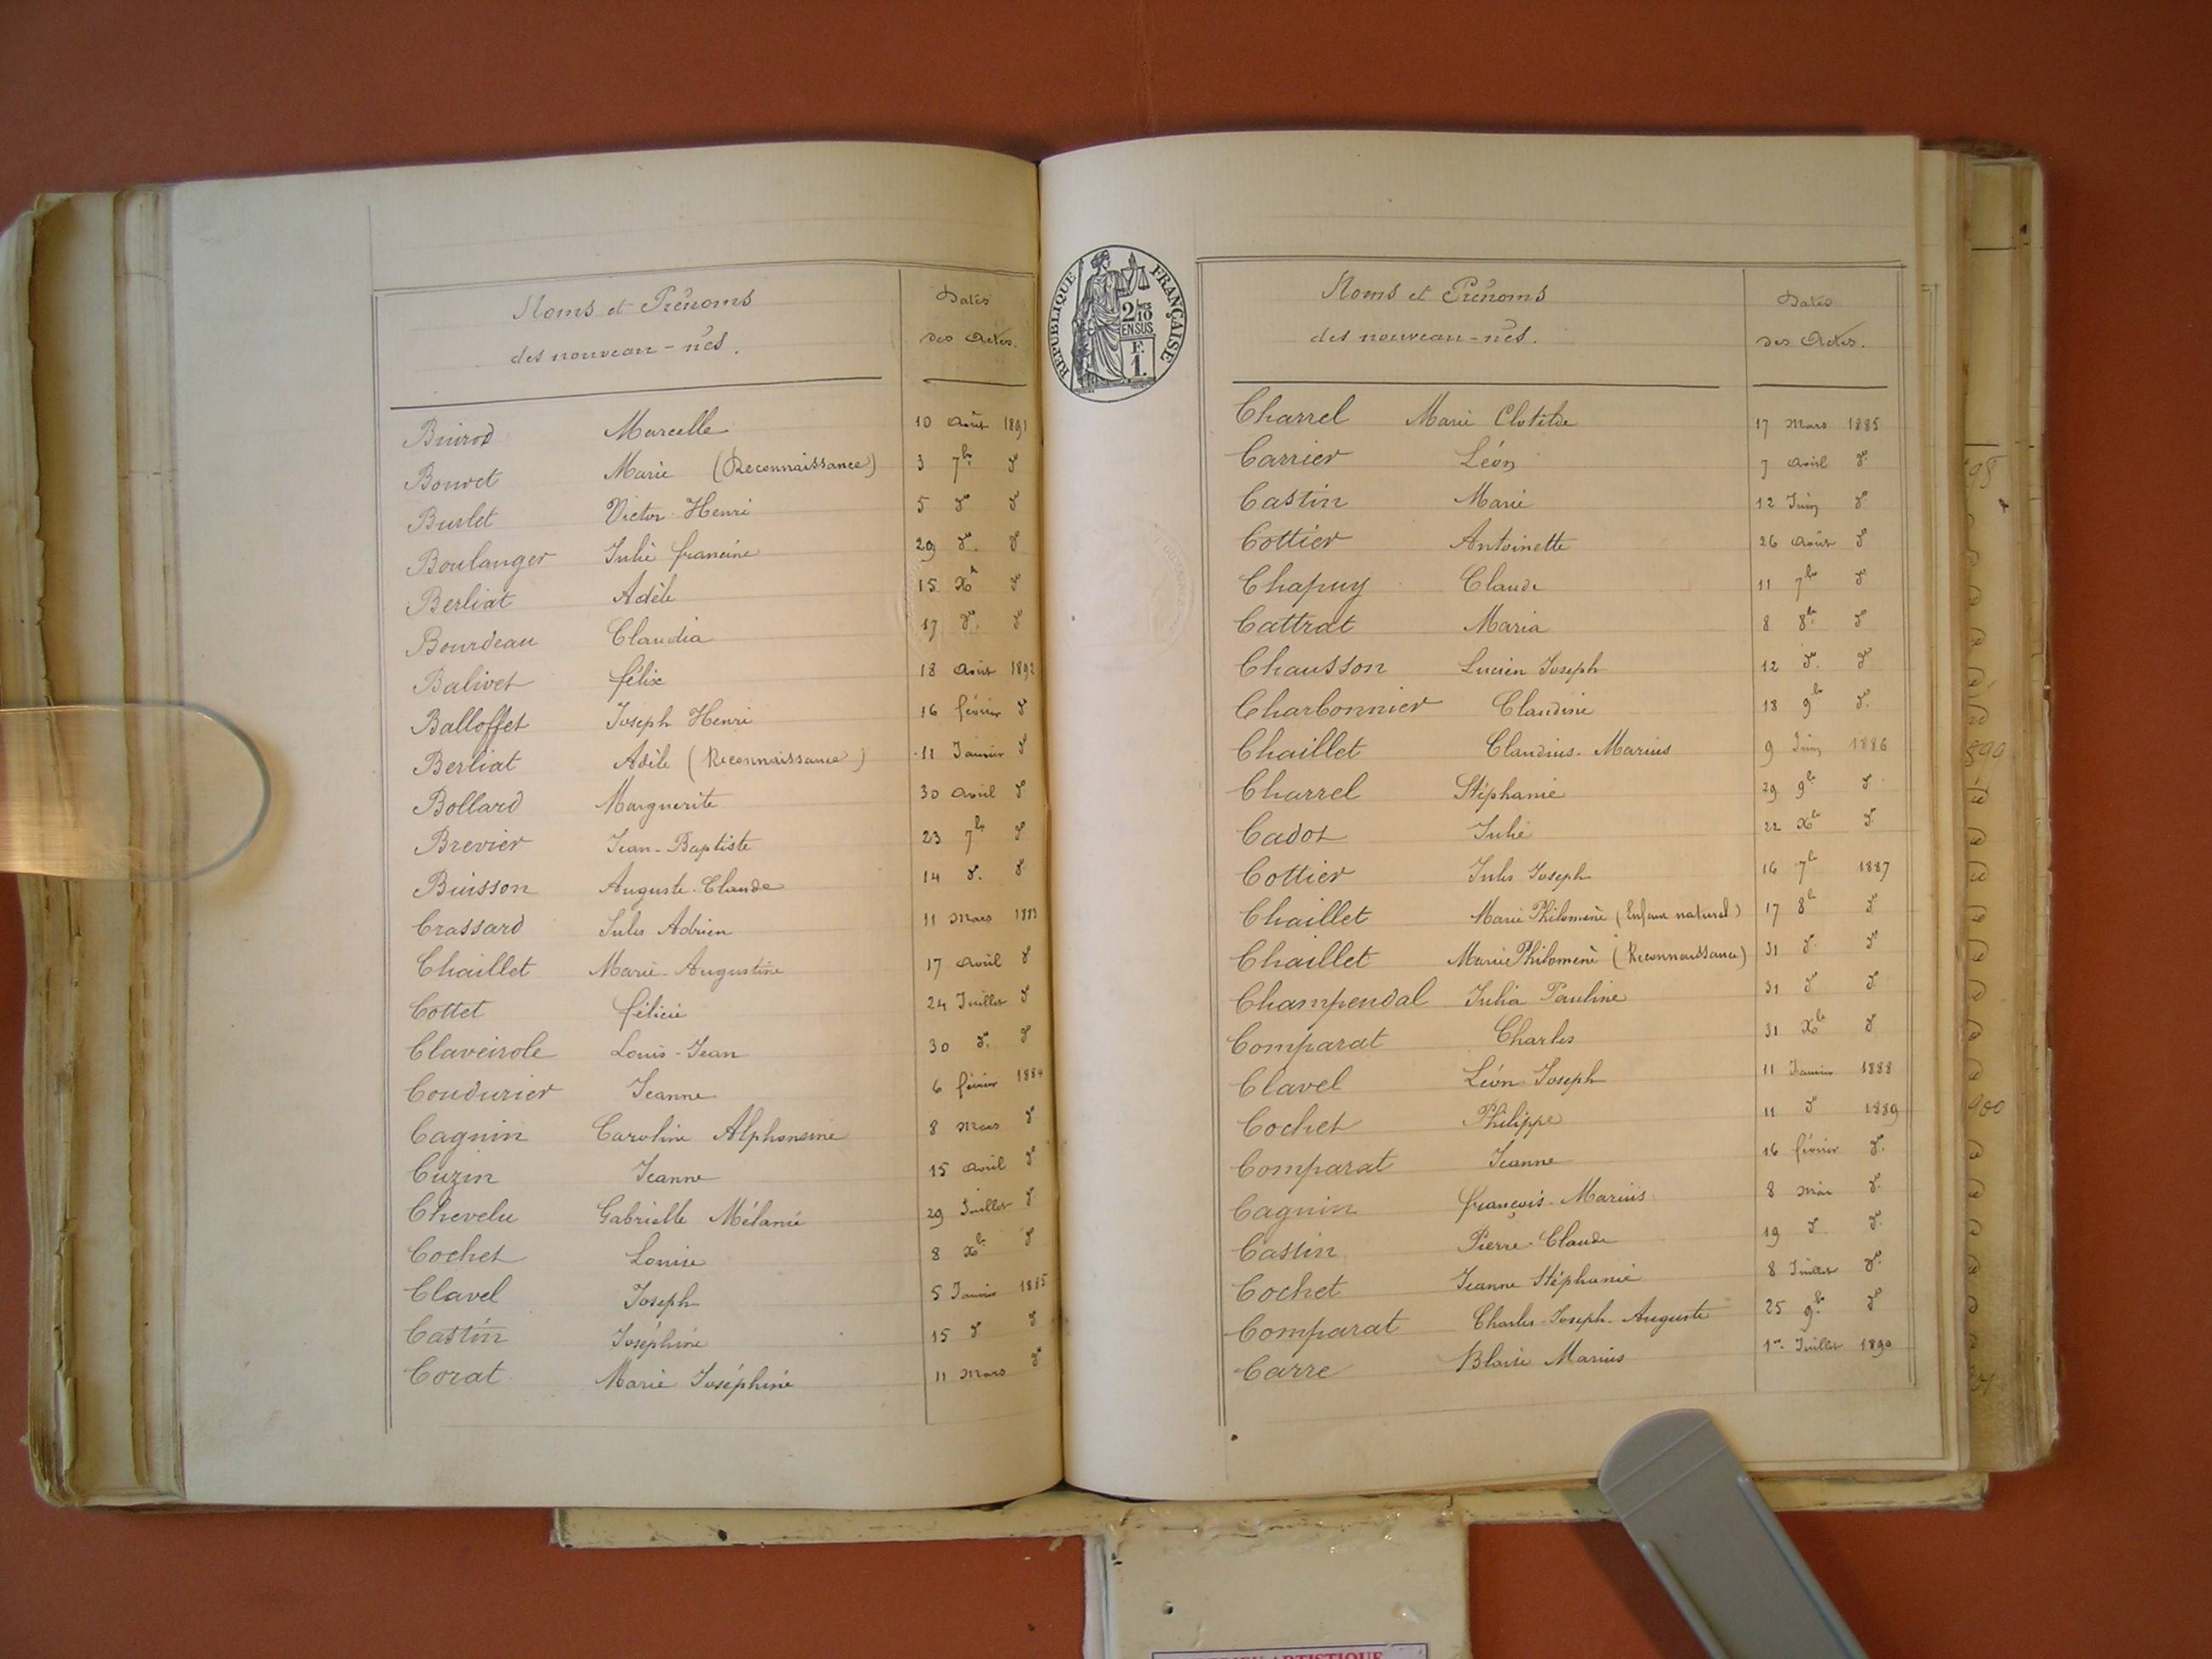 Noms et Prénoms
des nouveau-nés.
Dates
des Actes.
Marcelle 10 Août 1891
Bouvet Marie (Reconnaissance) 3 7bre do
Burlet Victor Henri 5 do do
Boulanger Julie francine 29 do. do
Berliat Adèle 15 Xbre do
Bourdeau Claudia 17 do. do
Balivet félix 18 Août 1892
Balloffet Joseph Henri 16 février do
Berliat Adèle (Reconnaissance) 11 Janvier do
Bollard Marguerite 30 Avril do
Brevier Jean-Baptiste 23 7bre do
Buisson Auguste-Claude 14 do. do
Crassard Jules Adrien 11 Mars 1883
Chaillet Marie-Augustine 17 Avril do
Cottet félicie 24 Juillet do
Claveirole Louis-Jean 30 do. do
Coudurier Jeanne 6 février 1884
Cagnin Caroline Alphonsine 8 Mars do
Cuzin Jeanne 15 Avril do
Chevelu Gabrielle Mélanie 29 Juillet do
Cochet Louise 8 Xbre do
Clavel Joseph 5 Janvier 1885
Castin Joséphine 15 do do
Corat Marie Joséphine 11 Mars do
RÉPUBLIQUE FRANÇAISE
2/10
EN SUS
F.
1.
Noms et Prénoms
des nouveau-nés.
Dates
des Actes.
Charrel Marie Clotilde 17 Mars 1885
Carrier Léon 7 Avril do
Castin Marie 12 Juin do
Cottier Antoinette 26 Août do
Chapuy Claude 11 7bre do
Cattrat Maria 8 8bre do
Chausson Lucien Joseph 12 do. do
Charbonnier Claudine 18 9bre do.
Chaillet Claudius-Marius 9 Juin 1886
Charrel Stéphanie 29 9bre do
Cadot Julie 22 Xbre do
Cottier Jules Joseph 16 7bre 1887
Chaillet Marie Philomène (Enfant naturel) 17 8bre do
Chaillet Marie Philomène (Reconnaissance) 31 do do
Champendal Julia Pauline 31 do do
Comparat Charles 31 Xbre do
Clavel Léon Joseph 11 Janvier 1888
Cochet Philippe 11 do 1889
Comparat Jeanne 16 février do.
Cagnin françois-Marius 8 Mai do.
Castin Pierre-Claude 19 do do.
Cochet Jeanne Stéphanie 8 Juillet do.
Comparat Charles-Joseph-Auguste 25 9bre do
Carre Blaise Marius 1er Juillet 1890
890
900